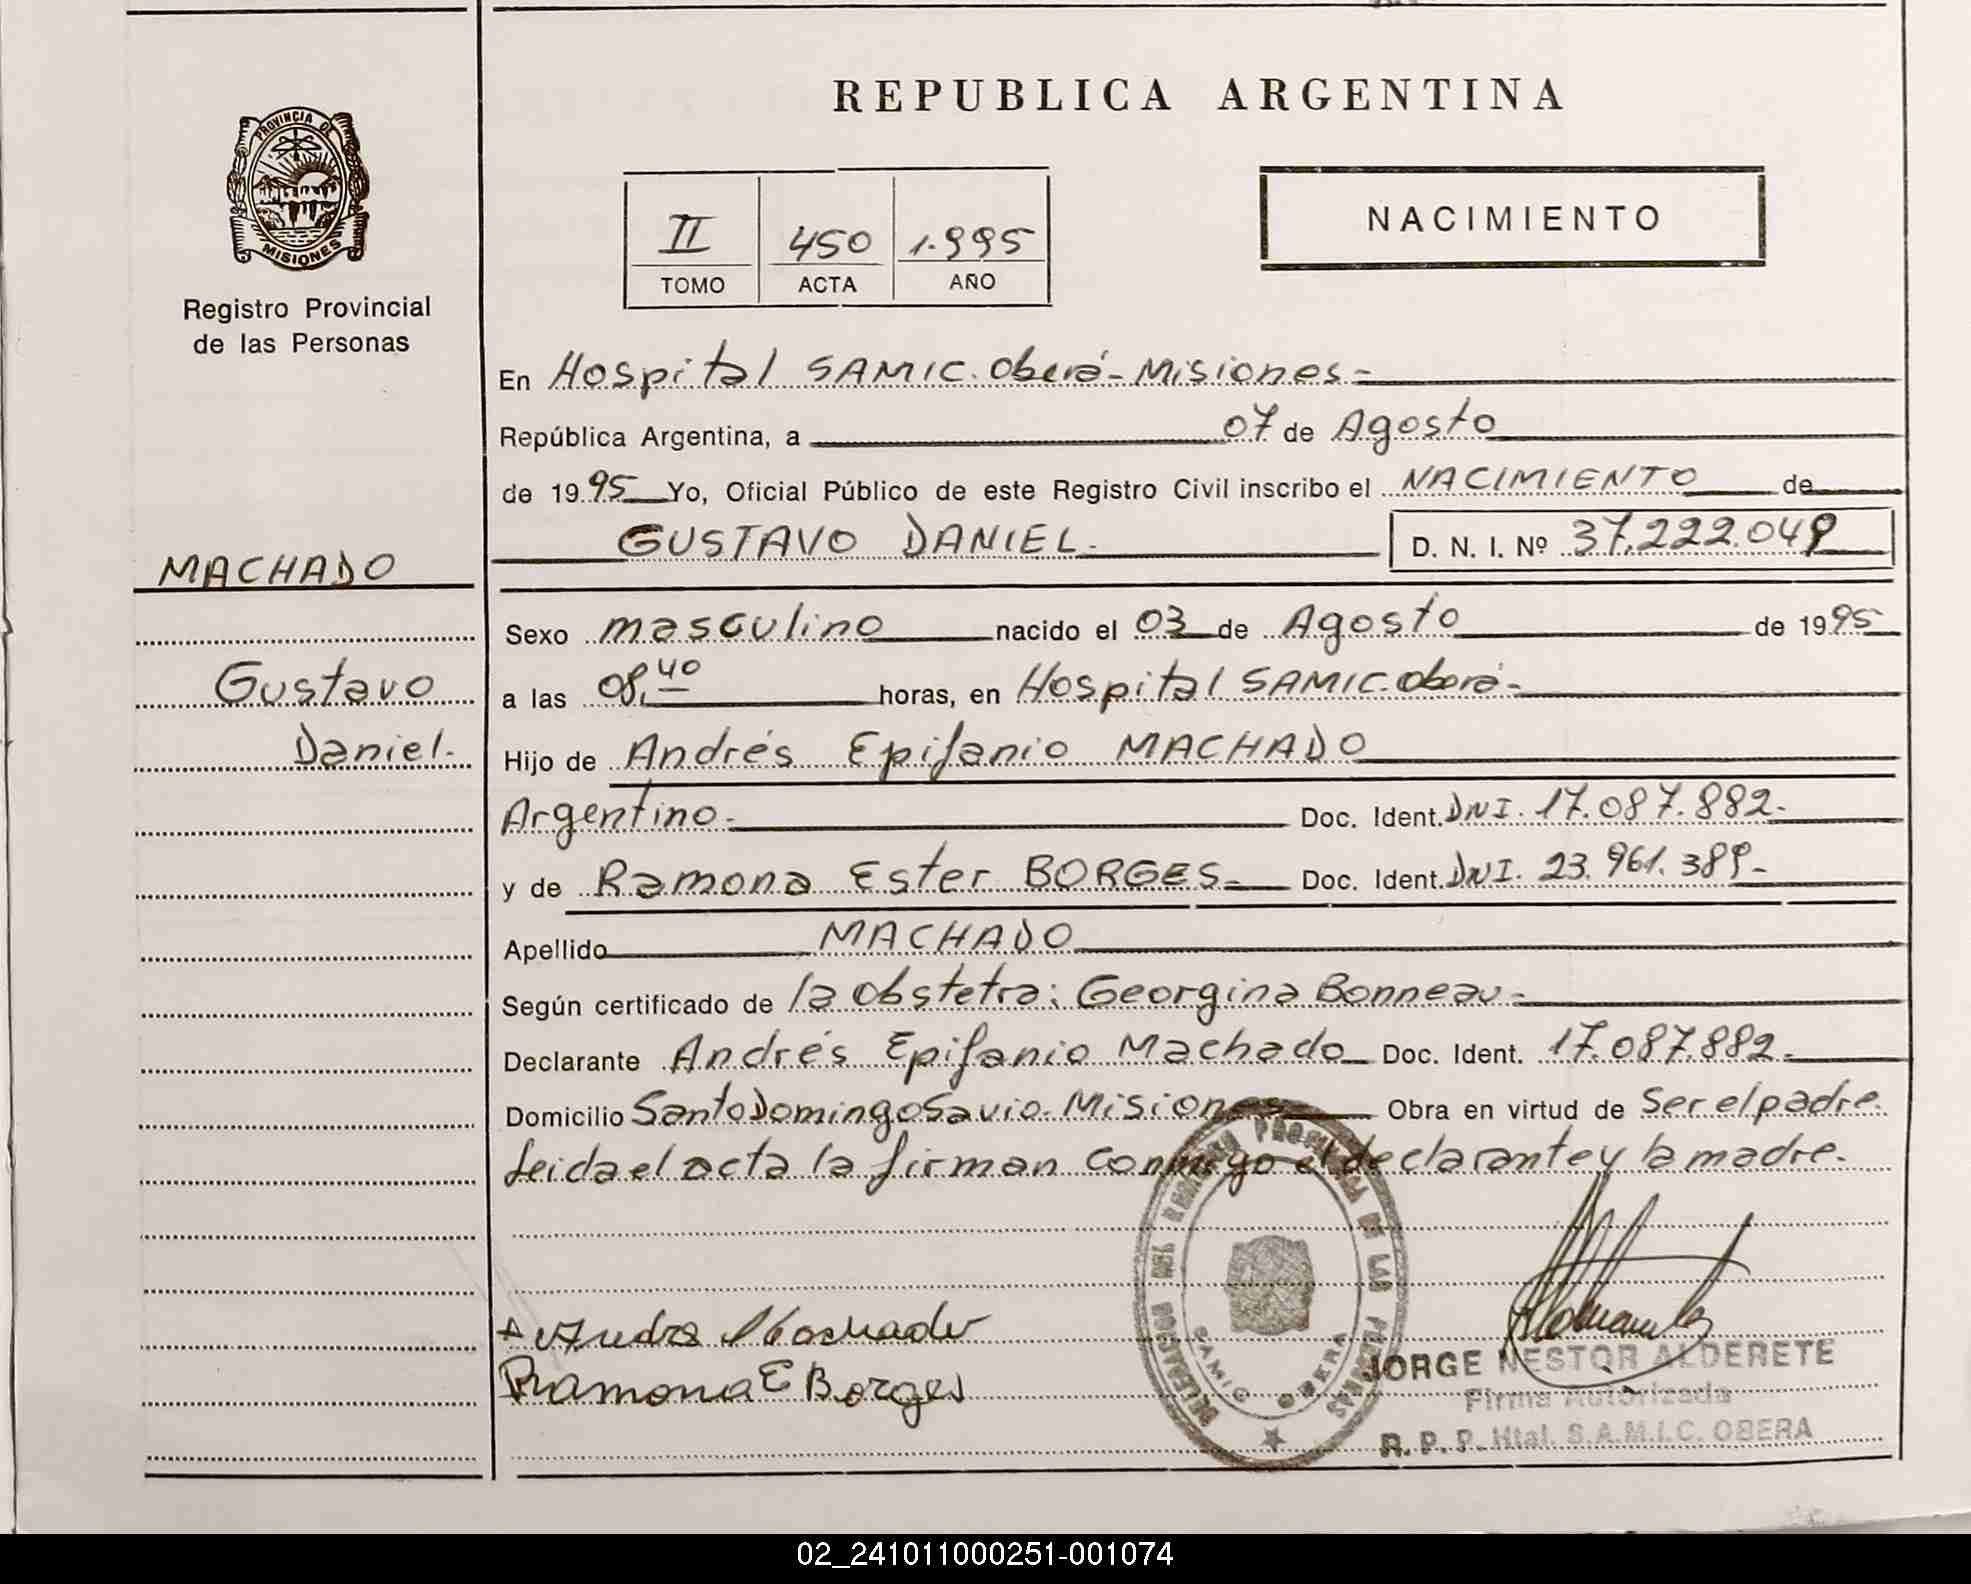 REPUBLICA ARGENTINA
PROVINCIA DE
MISIONES
Registro Provincial
de las Personas
II 450 1.995
TOMO ACTA AÑO
NACIMIENTO
En Hospital SAMIC. Oberá-Misiones-
República Argentina, a 07 de Agosto
de 1995 Yo, Oficial Público de este Registro Civil inscribo el NACIMIENTO de
GUSTAVO DANIEL. D. N. I. Nº 37.222.049
MACHADO
Gustavo
Daniel.
Sexo masculino nacido el 03 de Agosto de 1995
a las 08,40 horas, en Hospital SAMIC-oberá-
Hijo de Andrés Epifanio MACHADO
Argentino.- Doc. Ident. DNI. 17.087.882-
y de Ramona Ester BORGES- Doc. Ident. DNI. 23.961.389-
Apellido MACHADO
Según certificado de la obstetra: Georgina Bonneau-
Declarante Andrés Epifanio Machado Doc. Ident. 17.087.882-
Domicilio Santo Domingo Savio-Misiones Obra en virtud de Ser el padre.
Leida el acta la firman conmigo el declarante y la madre.
Machado
Ramona E Borges
DELEGACION DEL REGISTRO PROVINCIAL DE LAS PERSONAS
SAMIC OBERA
JORGE NESTOR ALDERETE
Firma Autorizada
R. P. P. Htal. S.A.M.I.C. OBERA
02_241011000251-001074